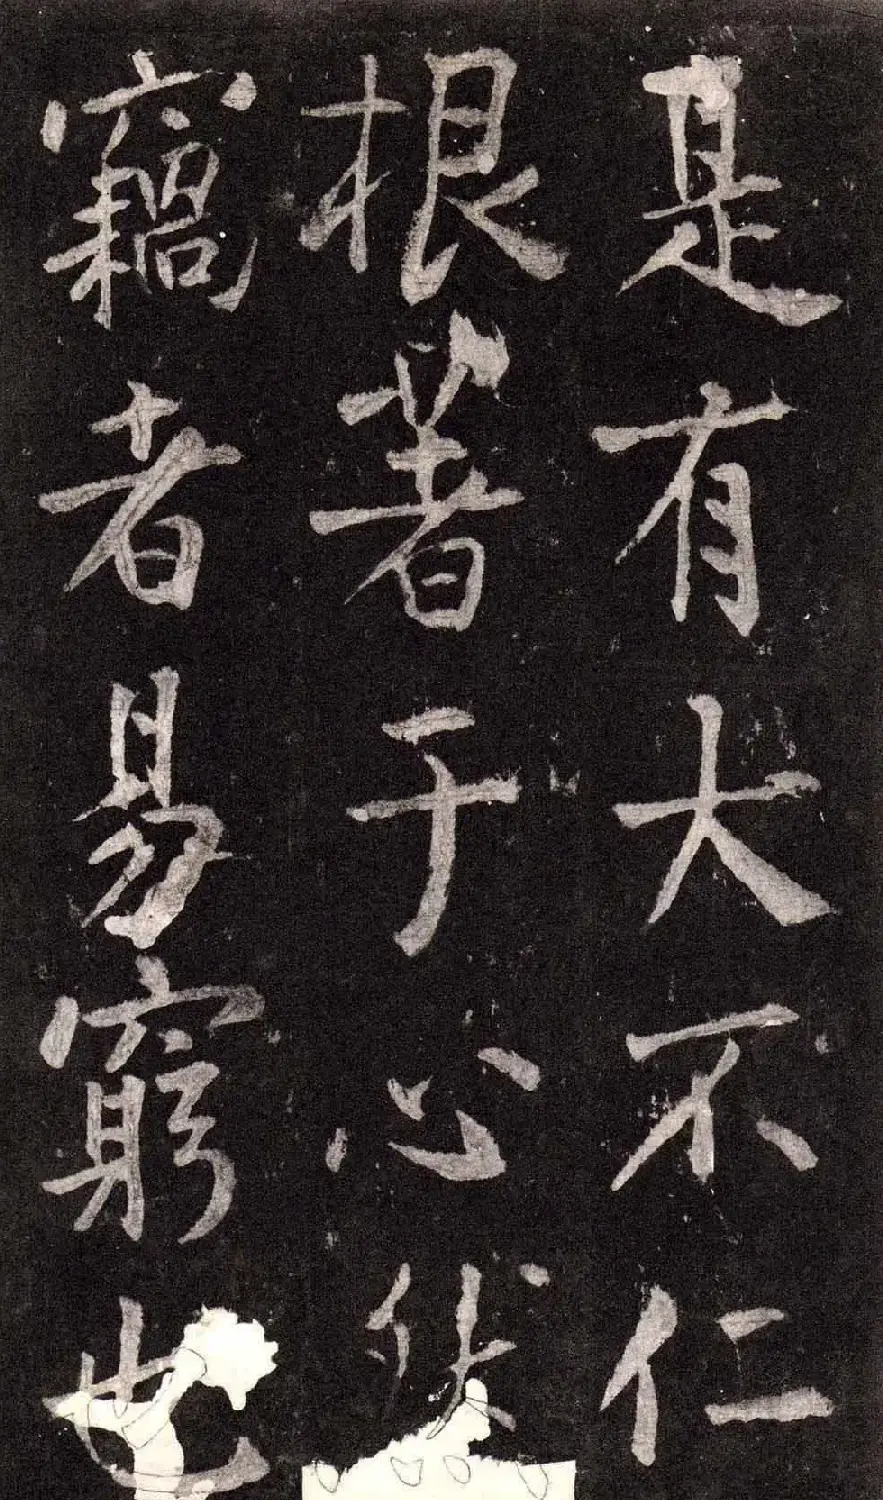 是有大不仁
根著于心然
竊者易窮也